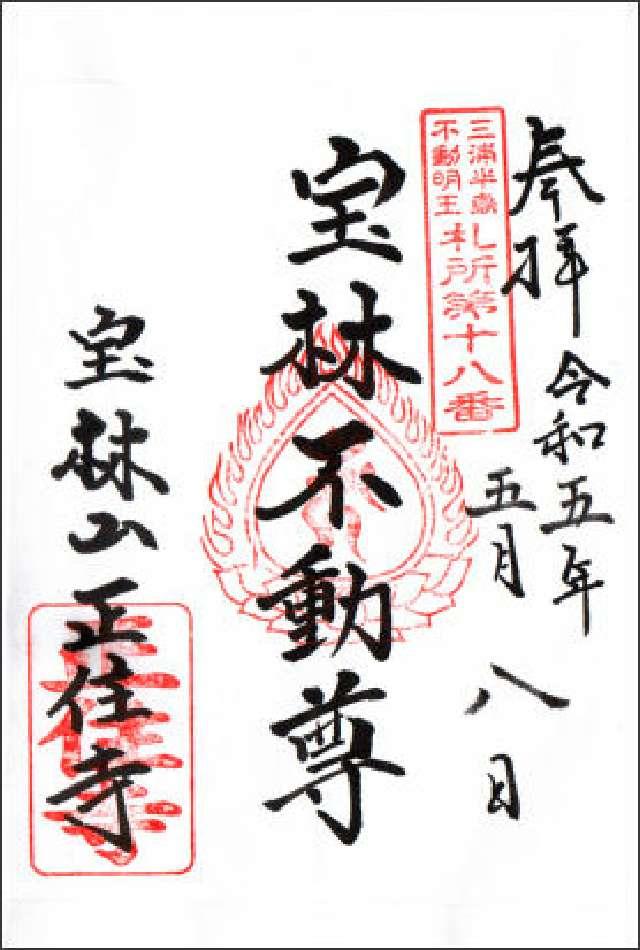 奉拝
令和五年
五月
八日
三浦半島
不動明王
札所第十八番
宝林不動尊
宝林山
正住寺